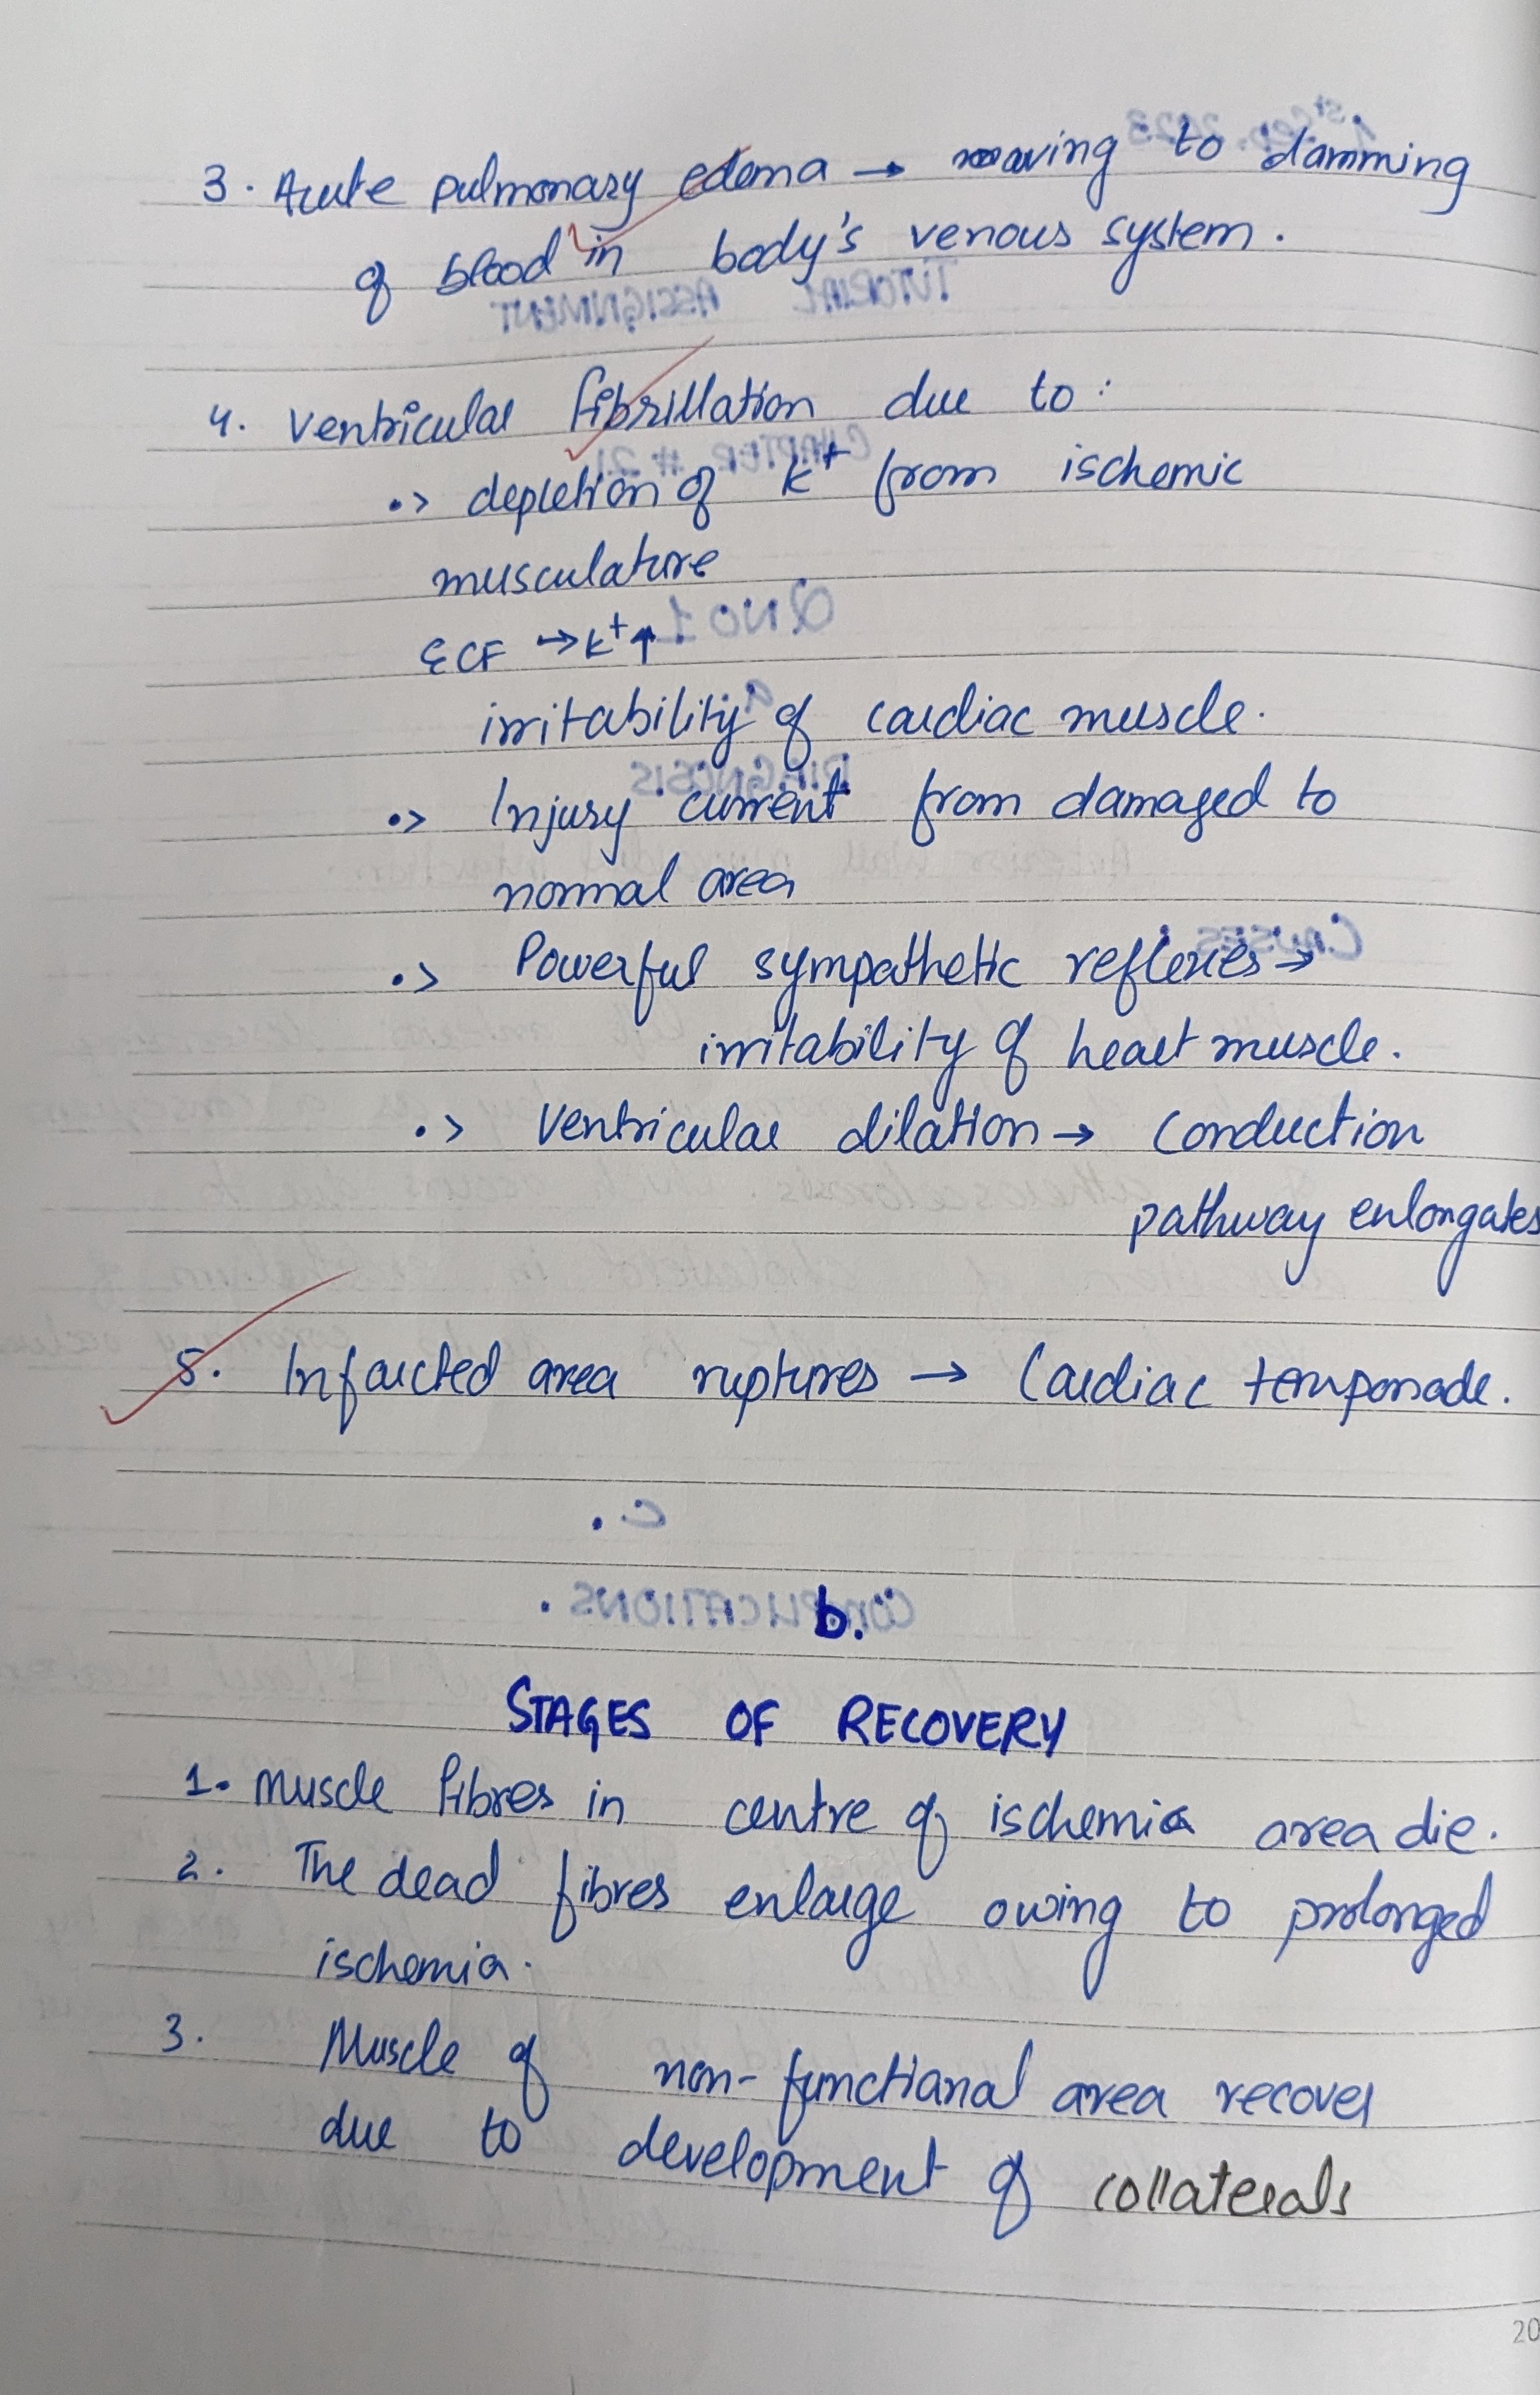 3. Acute pulmonary edema → moaving to damming
of blood in body's venous system.
4. Ventricular fibrillation due to:
•> depletion of K+ from ischemic
musculature
ECF → K+↑
irritability of cardiac muscle.
•> Injury current from damaged to
normal area
•> Powerful sympathetic reflexes →
irritability of heart muscle.
•> Ventricular dilation → Conduction
pathway enlongates
5. Infarcted area ruptures → Cardiac temponade.
b.
STAGES OF RECOVERY
1. Muscle fibres in centre of ischemia area die.
2. The dead fibres enlarge owing to prolonged
ischemia.
3. Muscle of non-functional area recover
due to development of collaterals
20